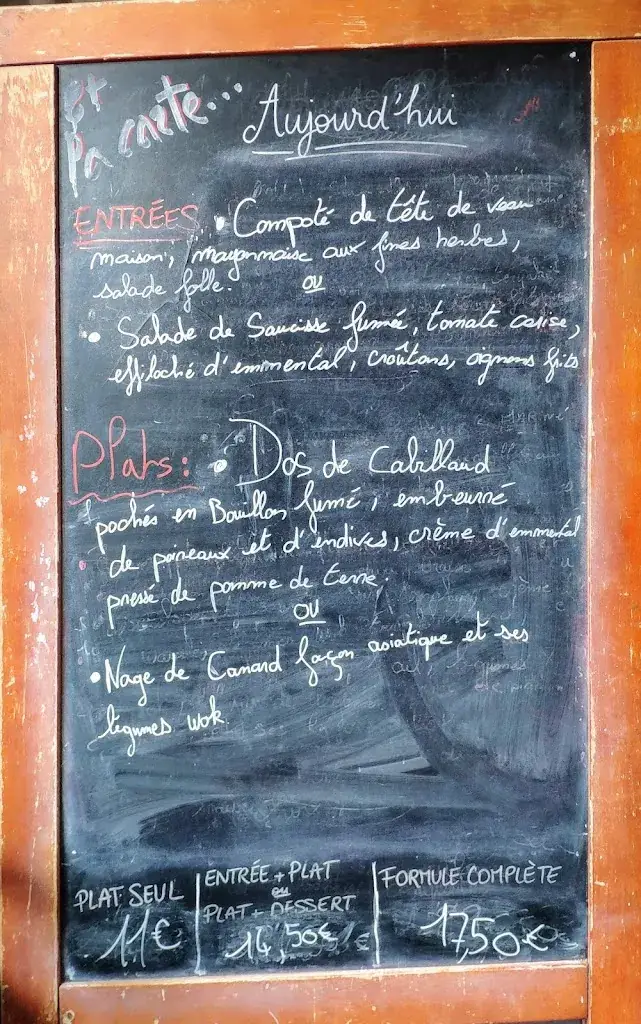 et
la carte...
Aujourd'hui
ENTRÉES • Compoté de tête de veau
maison, mayonnaise aux fines herbes,
salade folle.
OU
• Salade de Saucisse fumée, tomate cerise,
effiloché d'emmental, croûtons, oignons frits
Plats: • Dos de Cabillaud
pochés en Bouillon fumé, embeurré
de poireaux et d'endives, crème d'emmental
pressé de pomme de terre.
OU
• Nage de Canard façon asiatique et ses
légumes wok
PLAT SEUL
11€
ENTRÉE + PLAT
ou
PLAT + DESSERT
14,50€
FORMULE COMPLÈTE
17,50€